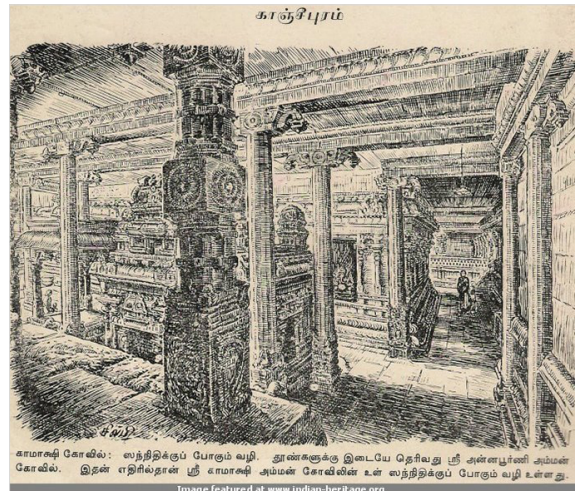 காஞ்சீபுரம்
சில்பி
காமாக்ஷி கோவில்: ஸந்நிதிக்குப் போகும் வழி. தூண்களுக்கு இடையே தெரிவது ஸ்ரீ அன்னபூர்ணி அம்மன்
கோவில். இதன் எதிரில்தான் ஸ்ரீ காமாக்ஷி அம்மன் கோவிலின் உள் ஸந்நிதிக்குப் போகும் வழி உள்ளது.
Image featured at www.indian-heritage.org